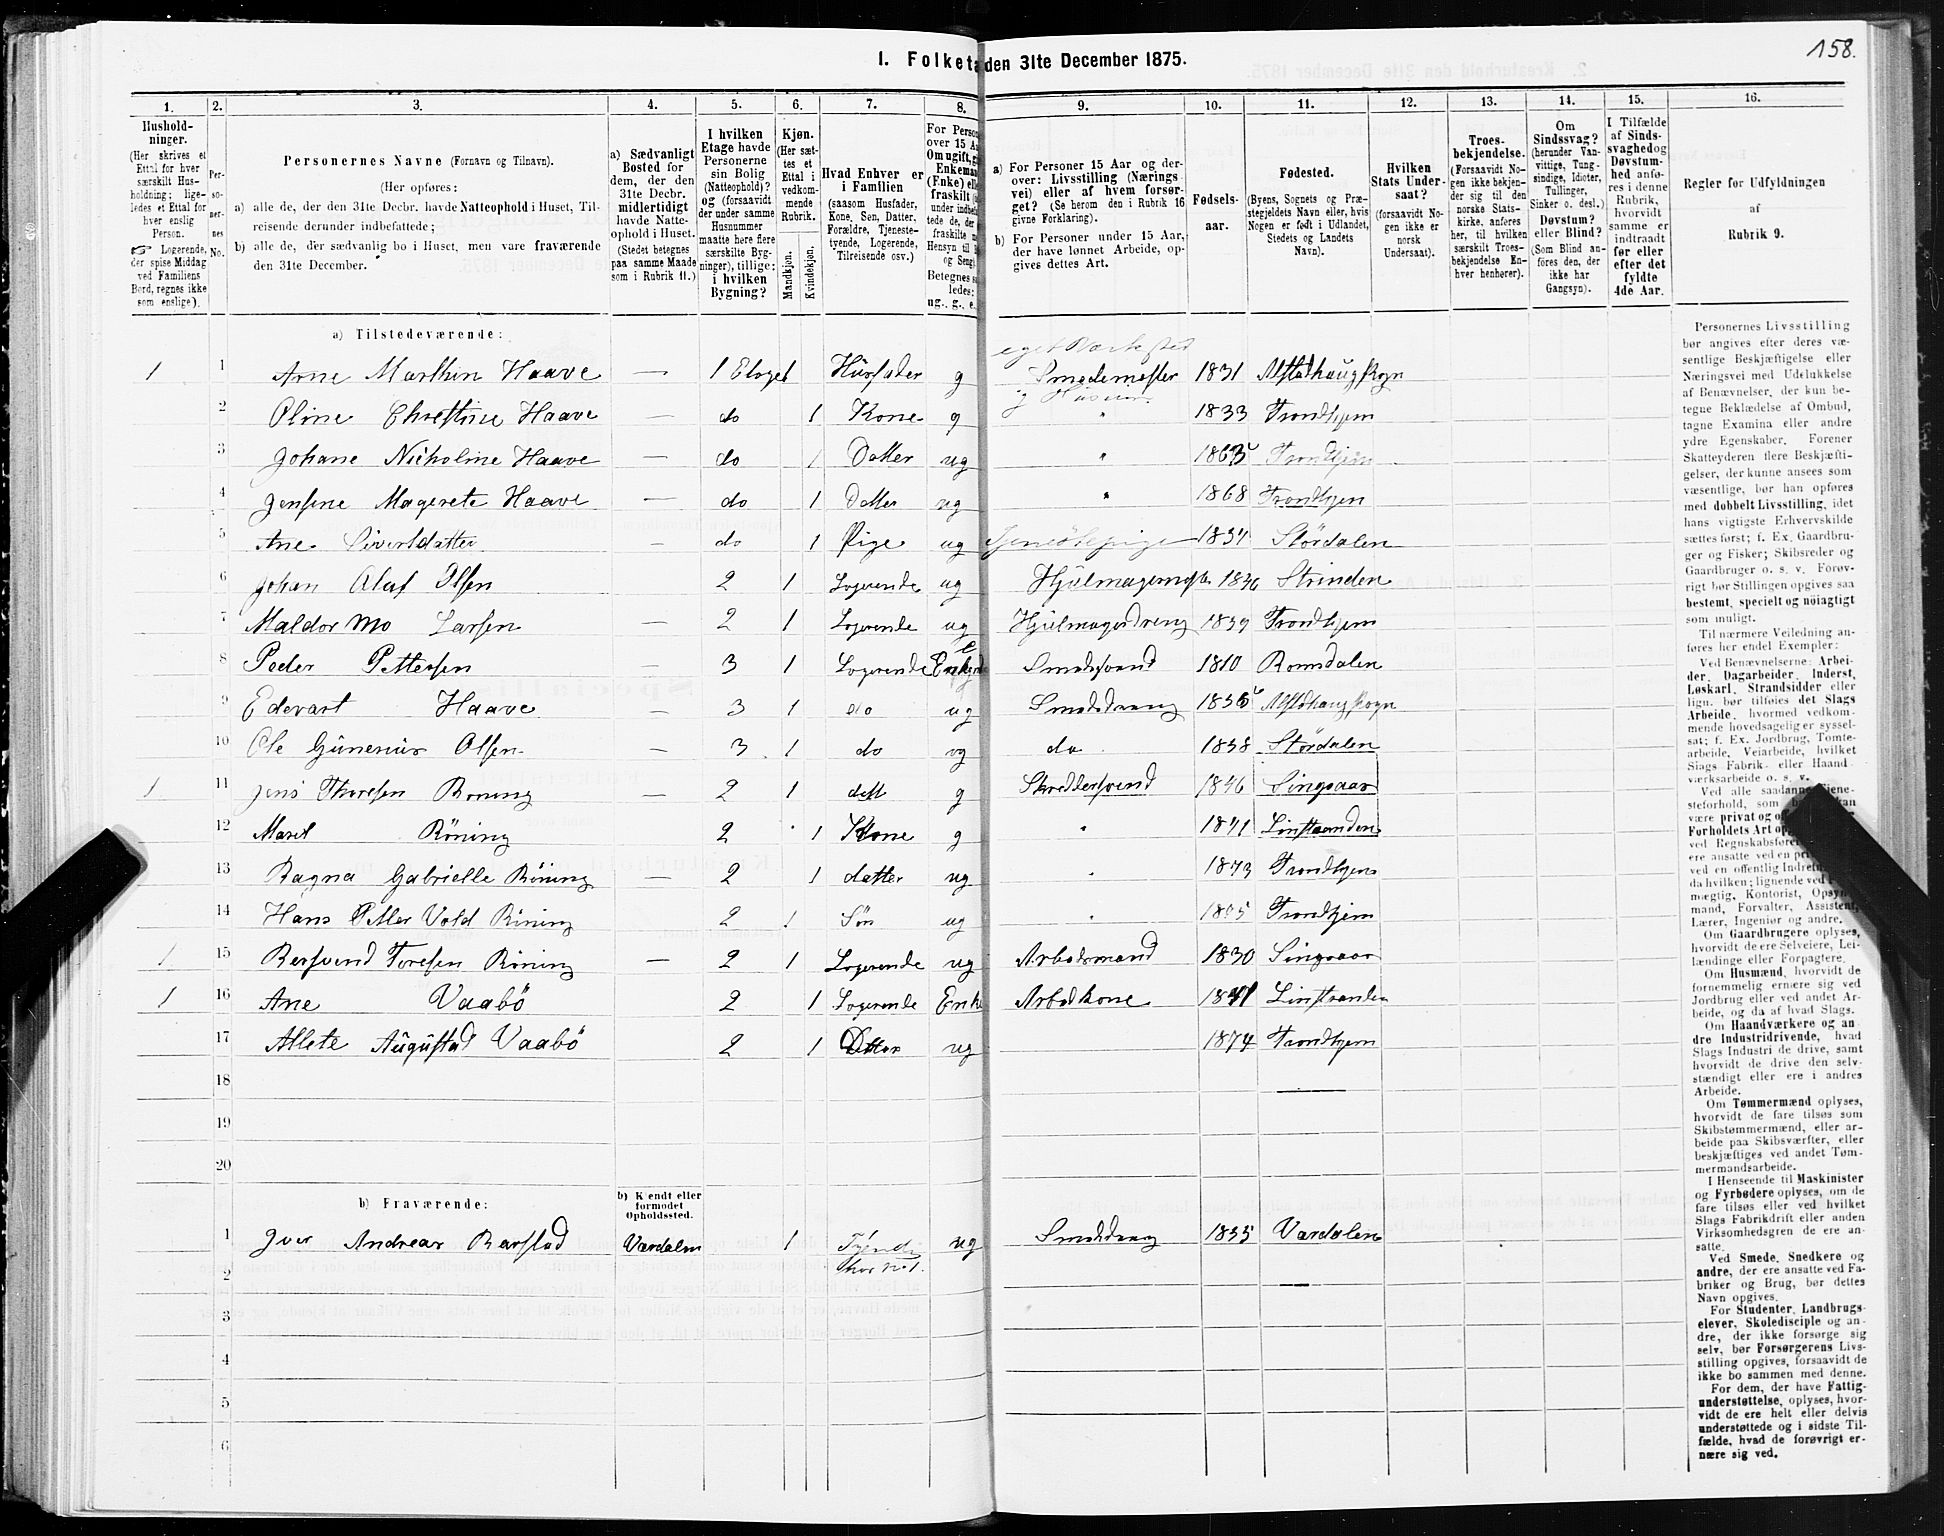 158.
1. Folketæ den 31te December 1875.
1. 2. 3. 4. 5. 6. 7. 8. 9. 10. 11. 12. 13. 14. 15. 16.
Hushold-
ninger.
(Her skrives et
Ettal for hver
særskilt Hus-
holdning; lige-
ledes et Ettal for
hver enslig
Person.
☞ Logerende,
der spise Middag
ved Familiens
Bord, regnes ikke
som enslige).
Per-
so-
ner-
nes
No.
Personernes Navne (Fornavn og Tilnavn).
(Her opføres:
a) alle de, der den 31te Decbr. havde Natteophold i Huset, Til-
reisende derunder indbefattede;
b) alle de, der sædvanlig bo i Huset, men vare fraværende
den 31te December.
a) Sædvanligt
Bosted for
dem, der den
31te Decbr.
midlertidigt
havde Natte-
ophold i Huset.
(Stedet betegnes
paa samme Maade
som i Rubrik 11.)
I hvilken
Etage havde
Personerne
sin Bolig
(Natteophold)?
og (forsaavidt
der under samme
Husnummer
maatte høre flere
særskilte Byg-
ninger), tillige:
i hvilken
Bygning?
Kjøn.
(Her sæt-
tes et
Ettal i
vedkom-
mende
Rubrik.
Mandkjøn.
Kvindekjøn.
Hvad Enhver er
i Familien
(saasom Husfader,
Kone, Søn, Datter,
Forældre, Tjeneste-
tyende, Logerende,
Tilreisende osv.)
For Person
over 15 A
Om ugift, g
Enkeman
(Enke) ell
fraskilt (
under indbe
tede de, de
fraskilte
Hensyn til
og Seng)
Betegnes s
ledes:
ug., g., e.
a) For Personer 15 Aar og der-
over: Livsstilling (Nærings
vei) eller af hvem forsør-
get? (Se herom den i Rubrik 16
givne Forklaring).
b) For Personer under 15 Aar,
der have lønnet Arbeide, op-
gives dettes Art.
Fødsels-
aar.
Fødested.
(Byens, Sognets og Præ-
stegjeldets Navn eller, hvis
Nogen er født i Udlandet,
Stedets og Landets
Navn).
Hvilken
Stats Under-
saat?
(forsaavidt No-
gen ikke er
norsk
Undersaat).
Troes-
bekjendelse.
(Forsaavidt No-
gen ikke bekjen-
der sig til den
norske Stats-
kirke, anføres
her, til hvilken
særskilt Troes-
bekjendelse En-
hver henhører).
Om
Sindssvag?
(herunder Van-
vittige, Tung-
sindige, Idioter,
Tullinger,
Sinker o. desl.)
Døvstum?
eller Blind?
(Som Blind an-
føres den, der
ikke har
Gangsyn).
I Tilfælde
af Sinds-
svaghed og
Døvstum-
hed anfø-
res i denne
Rubrik,
hvorvidt
samme er
indtraadt
før eller
efter det
fyldte
4de Aar.
Regler for Udfyldningen
af
Rubrik 9.
a) Tilstedeværende:
eget Værksted
1 1 Arne Marthin Haave — 1 Etage 1 Husfader g Smedemester 1831 Alstahaug Sogn
2 Oline Christine Haave — do 1 Kone g " 1833 Trondhjem
3 Johane Nicholine Haave — do 1 Datter ug " 1865 Trondhjem
4 Jensine Magerete Haave — do 1 Datter ug " 1868 Trondhjem
5 Ane Sivertdatter — do 1 Pige ug Tjenestepige 1834 Stördalen
6 Johan Olaf Olsen 2 1 Logerende ug Hjulmagermstr 1836 Strinden
7 Maldor Mo Larsen — 2 1 Logerende ug Hjulmagerdreng 1859 Trondhjem
8 Peder Pettersen — 3 1 Logerende Smedsvend 1810 Romsdalen
9 Edevart Haave — 3 1 do ug Smeddreng 1856 Alstahaug Sogn
10 Ole Gunerius Olsen — 3 1 do ug do 1858 Stördalen
1 11 Jens Thoresen Roning — 2 1 g Skredersvend 1846 Singsaas
12 Maret Röning 2 1 Kone g " 1841 Linstranden
13 Ragna Gabrielle Röning — 2 1 datter ug " 1873 Trondhjem
14 Hans Petter Vold Röning 2 1 Sön ug " Trondhjem
1 15 Bersvend Toresen Röning — 2 1 Logerende ug Arbedsmand 1830 Singsaas
1 16 Ane Vaabö 2 1 Logerende Enke Arbedkone 1841 Linstranden
17 Allete Augustad Vaabö 2 1 Datter ug 1874 Trondhjem
18
19
20
b) Fraværende:
b) Kjendt eller
formodet
Opholdssted.
1 Iver Andreas Barstad Værdalen 1 Tjende ug Smeddreng 1855 Værdalen
hos no 1.
2
3
4
5
6
Personernes Livsstilling
bør angives efter deres væ-
sentlige Beskjæftigelse eller
Næringsvei med Udelukkelse
af Benævnelser, der kun be-
tegne Beklædelse af Ombud,
tagne Examina eller andre
ydre Egenskaber. Forener
Skatteyderen flere Beskjæfti-
gelser, der kunne ansees som
væsentlige, bør han opføres
med dobbelt Livsstilling, idet
hans vigtigste Erhvervskilde
sættes først; f. Ex. Gaardbru-
ger og Fisker; Skibsreder og
Gaardbruger o. s. v. Forøv-
rigt bør Stillingen opgives saa
bestemt, specielt og nöiagtigt
som muligt.
Til nærmere Veiledning an-
føres her endel Exempler:
Ved Benævnelserne: Arbei-
der, Dagarbeider, Inderst,
Løskarl, Strandsidder eller
lign. bør tilføies det Slags
Arbeide, hvormed vedkom-
mende hovedsagelig er syssel-
sat; f. Ex. Jordbrug, Tomte-
arbeide, Veiarbeide, hvilket
Slags Fabrik- eller Haand-
værksarbeide o. s. v.
Ved alle saadanne Tjene-
steforhold, som
være privat og o
Forholdets Art op
ved Regnskabsfø
ere ansatte ved en pr
ved en offentlig Indret
da hvilken; lignende ved
mægtig, Kontorist, Opsyn
mand, Forvalter, Assistent,
Lærer, Ingeniør og andre.
Om Gaardbrugere oplyses,
hvorvidt de ere Selveiere, Lei-
lændinge eller Forpagtere.
Om Husmænd, hvorvidt de
fornemmelig ernære sig ved
Jordbrug eller ved andet Ar-
beide, og da af hvad Slags.
Om Haandværkere og an-
dre Industridrivende, hvad
Slags Industri de drive, samt
hvorvidt de drive den selv-
stændigt eller ere i andres
Arbeide.
Om Tømmermænd oplyses,
hvorvidt de fare tilsøs som
Skibstømmermænd, eller ar-
beide paa Skibsværfter, eller
beskjæftiges ved andet Tøm-
mermandsarbeide.
I Henseende til Maskinister
og Fyrbødere oplyses, om de
fare tilsøs eller ved hvilket
Slags Fabrikdrift eller anden
Virksomhedsgren de ere an-
satte.
Ved Smede, Snedkere og
andre, der ere ansatte ved Fa-
briker og Brug, bør dettes
Navn opgives.
For Studenter, Landbrugs-
elever, Skoledisciple og an-
dre, der ikke forsørge sig
selv, bør Forsørgerens Livs-
stilling opgives, forsaavidt de
ikke bo sammen med denne.
For dem, der have Fattig-
understøttelse, oplyses, hvor-
vidt de ere helt eller delvis
understøttede og i sidste Til-
fælde, hvad de forøvrigt er-
nære sig ved.